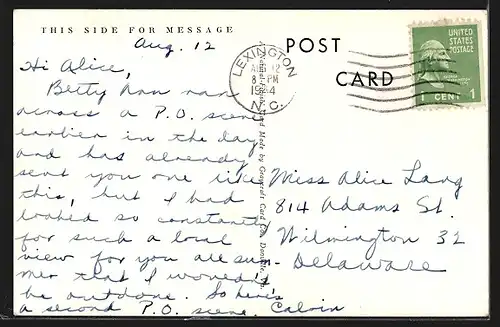 THIS SIDE FOR MESSAGE
Aug. 12
Hi Alice,
Betty Ann ran
across a P.O. scene
earlier in the day
and has already
sent you one like
this, but I had
looked so constantly
for such a local
view for you all sum-
mer that I wouldn't
be outdone. So here's
a second P.O. scene. Calvin
POST
CARD
LEXINGTON
AUG 12
PM
N.C.
UNITED
STATES
POSTAGE
1 CENT 1
Miss Alice Lang
814 Adams St.
Wilmington 32
Delaware